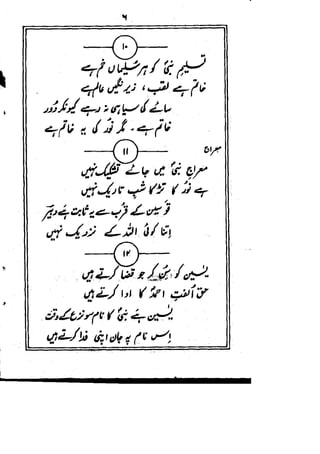 ۶
۱۰
تسلیم نبیؐ کو ہر سلیماں خم ہے
خاتم ہے لقب، زیرِ نگیں عالم ہے
سائے کی سیاہی نہ رہے کیونکر دور
خاتم ہے۔ مگر نور کی یہ خاتم ہے
۱۱
معراج
معراجِ نبیؐ میں جائے تشکیک نہیں
ہے نور کا تڑکا شبِ تاریک نہیں
قوسین کے قرب سے یہ ثابت ہے دبیرؔ
اتنا کوئی اللہ کے نزدیک نہیں
۱۲
یٰسین کو سن کے جو قضا کرتے ہیں
حقِ اُلفتِ احمدؐ کا ادا کرتے ہیں
یٰسین ہے نبیؐ کا نام سو نزع کے وقت
اِس نام پہ جان اپنی فدا کرتے ہیں